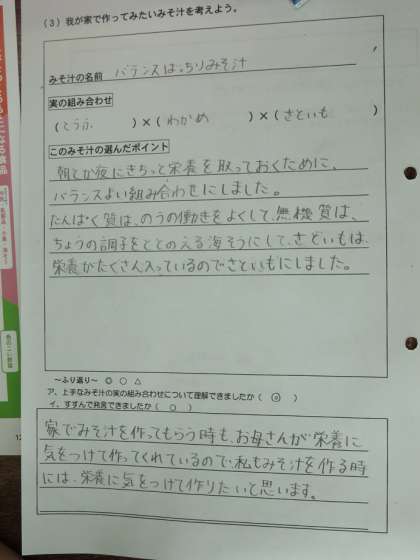 (3) 我が家で作ってみたいみそ汁を考えよう。
みそ汁の名前 バランスばっちりみそ汁
実の組み合わせ
(とうふ)×(わかめ)×(さといも)
このみそ汁の選んだポイント
朝とか夜にきちっと栄養を取っておくために、
バランスよい組み合わせにしました。
たんぱく質は、のうの働きをよくして、無機質は、
ちょうの調子をととのえる海そうにして、さといもは、
栄養がたくさん入っているのでさといもにしました。
〜ふり返り〜 ◎ ○ △
ア、上手なみそ汁の実の組み合わせについて理解できましたか(◎)
イ、すすんで発言できましたか(○)
家でみそ汁を作ってもらう時も、お母さんが栄養に
気をつけて作ってくれているので、私もみそ汁を作る時
には、栄養に気をつけて作りたいと思います。